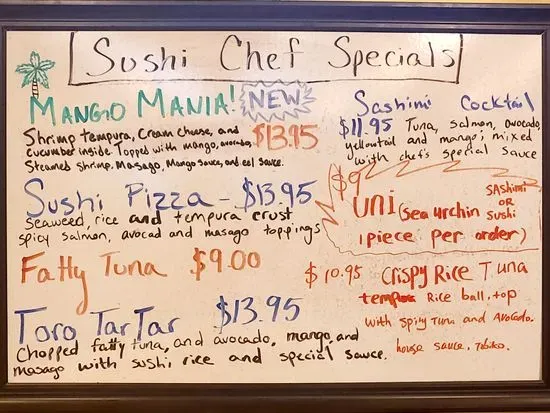 Sushi Chef Specials
MANGO MANIA! NEW
Shrimp tempura, Cream cheese, and
cucumber inside. Topped with mango, avocado, $13.95
Steamed shrimp, Masago, Mango sauce, and eel sauce.
Sushi Pizza - $13.95
seaweed, rice and tempura crust
spicy salmon, avocad and masago toppings
Fatty Tuna $9.00
Toro TarTar $13.95
Chopped fatty tuna, and avocado, mango, and
masago with sushi rice and special sauce.
Sashimi Cocktail
$11.95 Tuna, salmon, avocado,
yellowtail and mango; mixed
with chef's special sauce
$9
UNI (Sea Urchin SAShimi OR Sushi
1 piece per order)
$10.95 Crispy Rice Tuna
tempura Rice ball. top
with spicy Tuna and Avocado.
house sauce. Tobiko.